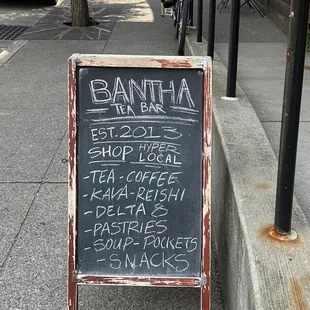 BANTHA
TEA BAR
EST. 2013
SHOP HYPER LOCAL
-TEA-COFFEE
-KAVA-REISHI
-DELTA 8
-PASTRIES
-SOUP-POCKETS
-SNACKS